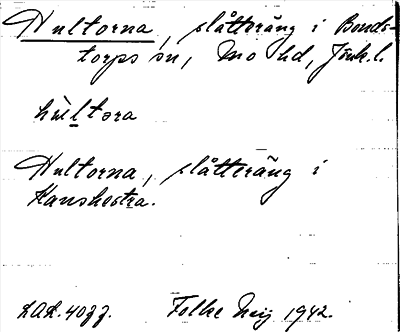 Hultorna, slåtteräng i Bonds-
torps sn, Mo hd, Jönk. l.
hùltωra
Hultorna, slåtteräng i
Kanshestra.
ZAL. 4077. Folke Neij 1942.